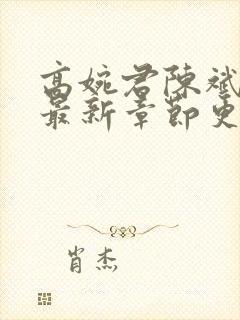 高婉君陈斌
最新章节更
肖杰